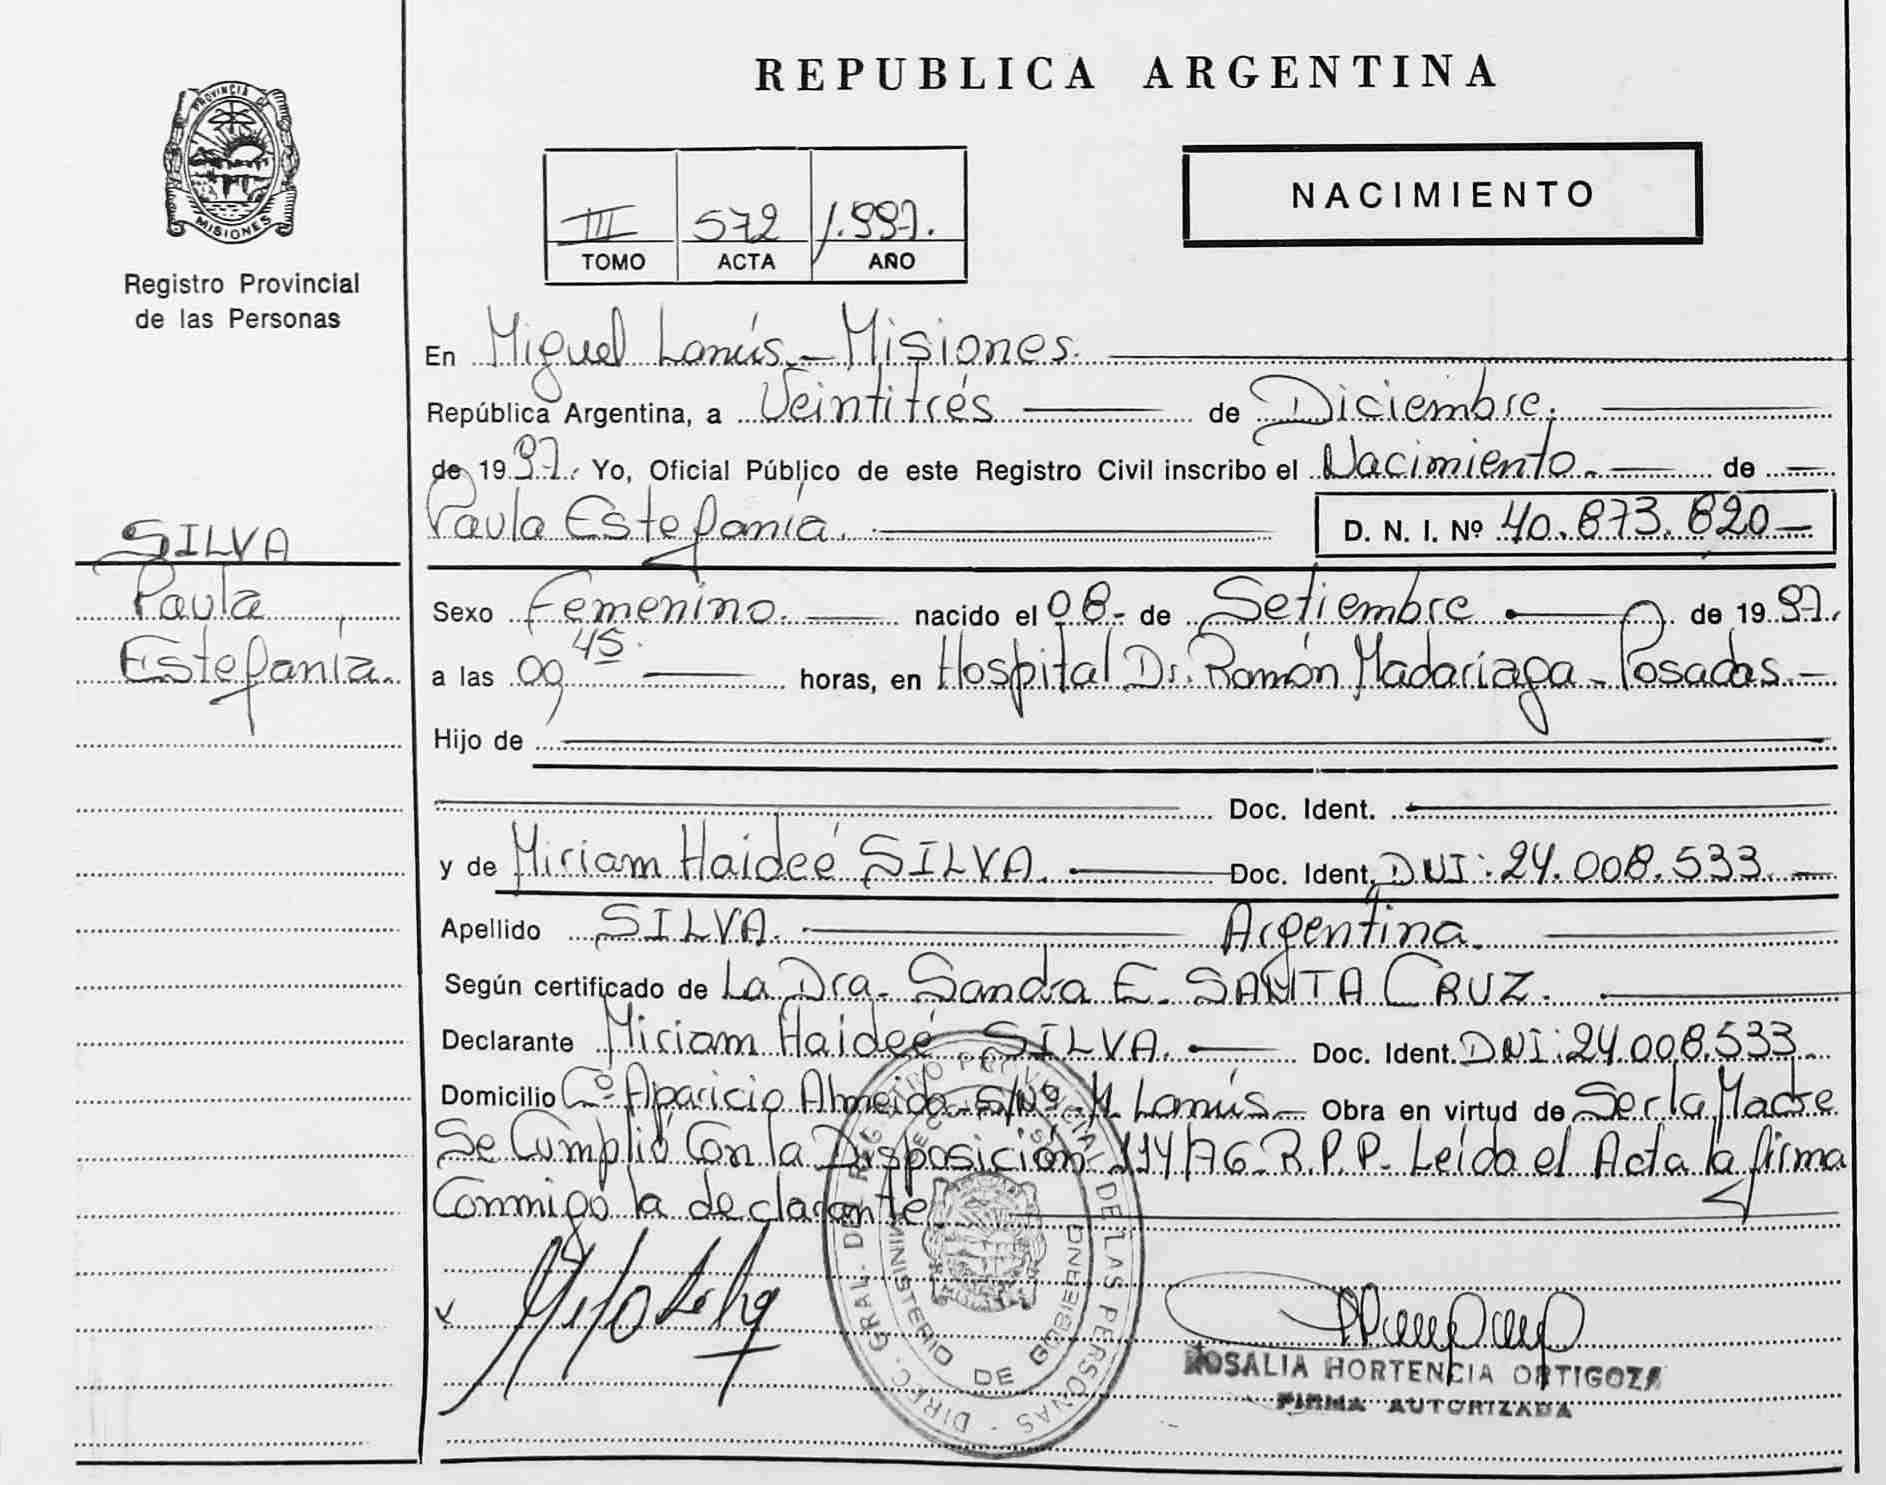 REPUBLICA ARGENTINA
PROVINCIA DE
MISIONES
Registro Provincial
de las Personas
NACIMIENTO
III 572 1.997.
TOMO ACTA AÑO
En Miguel Lanús - Misiones.
República Argentina, a Veintitrés de Diciembre.
de 1997. Yo, Oficial Público de este Registro Civil inscribo el Nacimiento. de
Paula Estefanía. D. N. I. Nº 40.873.820
SILVA
Paula
Estefanía.
Sexo Femenino. nacido el 08 de Setiembre de 1997.
a las 09 45 horas, en Hospital Dr. Ramón Madariaga - Posadas.
Hijo de
Doc. Ident.
y de Miriam Haideé SILVA. Doc. Ident. DNI: 24.008.533.
Apellido SILVA. Argentina.
Según certificado de La Dra. Sandra E. SANTA CRUZ.
Declarante Miriam Haideé SILVA. Doc. Ident. DNI: 24.008.533
Domicilio Cº Aparicio Almeida S/Nº M. Lanús. Obra en virtud de Ser la Madre
Se Cumplió Con la Disposición 114/76 R.P.P. Leída el Acta la firma
Conmigo la declarante.
DIREC. GRAL. DEL REGISTRO PROVINCIAL DE LAS PERSONAS
MINISTERIO DE GOBIERNO
ROSALIA HORTENCIA ORTIGOZA
FIRMA AUTORIZADA